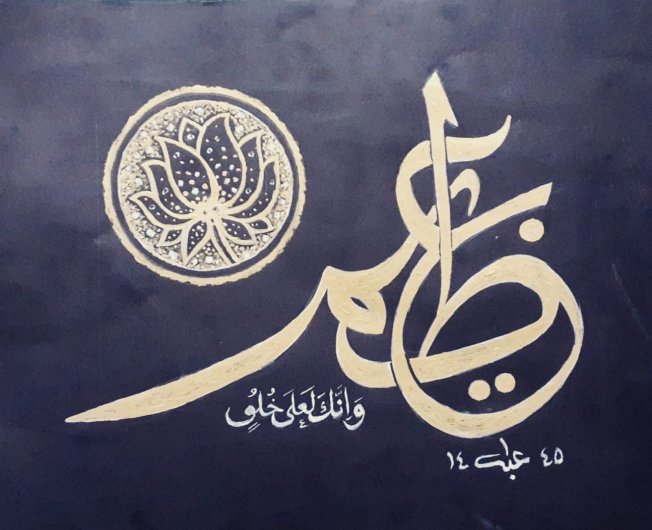 عظيم
وَاِنَّكَ لَعَلَى خُلُقٍ
٤٥ ١٤